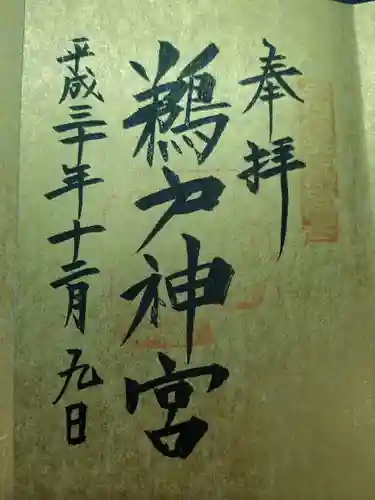 奉拝
鵜力神宮
平成三十年十二月九日